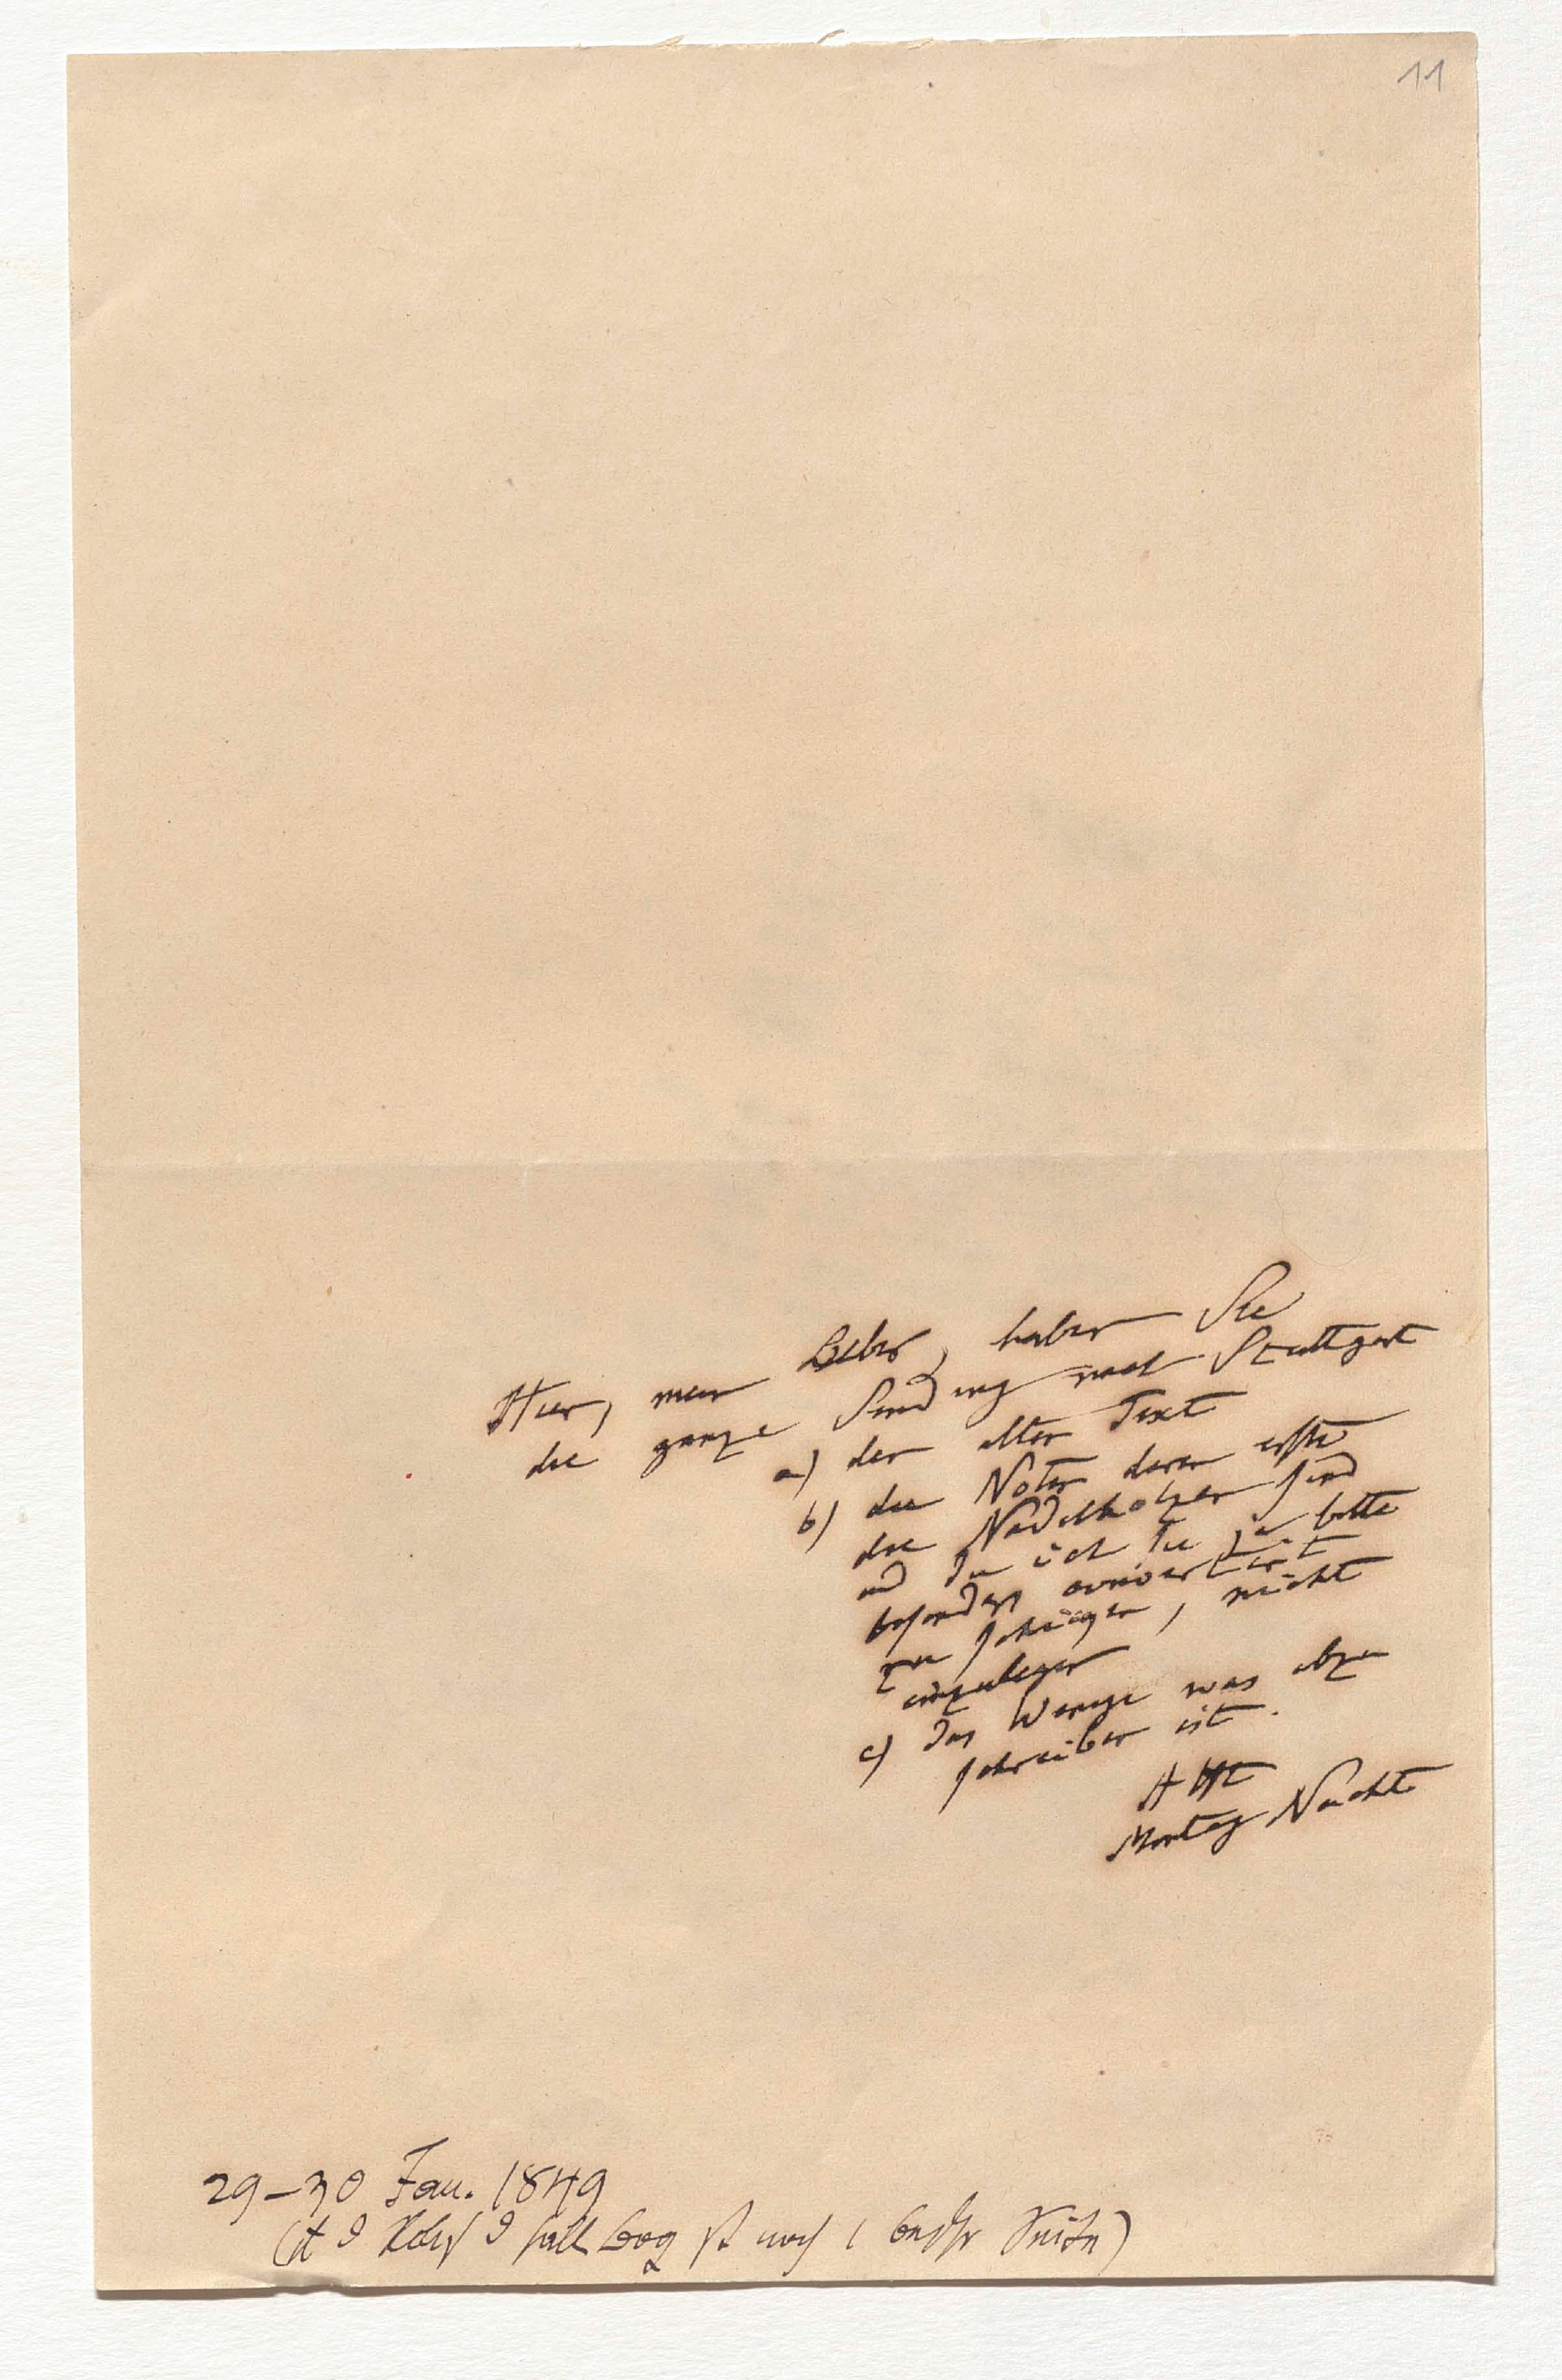 11
Hier, mein Lieber, haben Sie
die ganze Sendung nach Stuttgart
a) den alten Text
b) die Noten deren erste
die Nadelhölzer sind
und die ich Sie ja bitte
besonders couvertirt
zu schicken, nicht
einzulegen
c) das Wenige was abzu
schreiben ist.
AHt
Montag Nachts
29–30 Jan. 1849